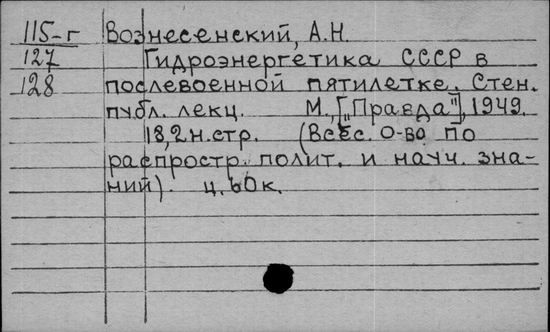 115-г Вознесенский, А.Н.
127 Гидроэнергетика СССР в
128 послевоенной пятилетке. Стен.
публ. лекц. М., ["Правда"], 1949.
18, 2 н. стр. (Всес. О-во по
распростр. полит. и науч. зна-
ний). ц. 60 к.